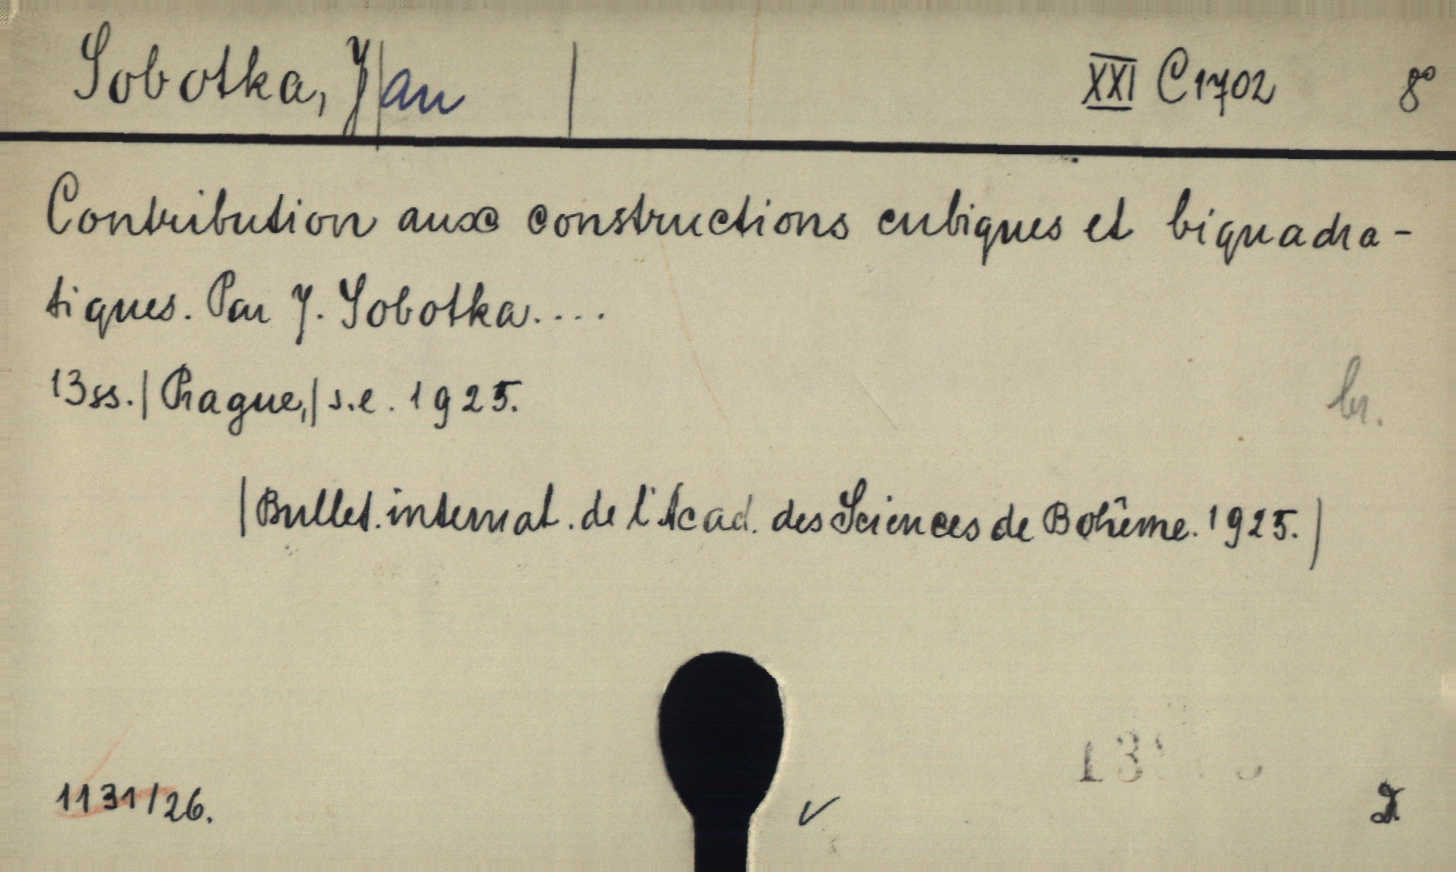 Sobotka, J|an | XXI C 1702 8°
Contribution aux constructions cubiques et biquadra-
tiques. Par J. Sobotka....
13 ss. | Prague, | s.e. 1925. br.
| Bullet. internat. de l'Acad. des Sciences de Bohême. 1925. |
1131/26.